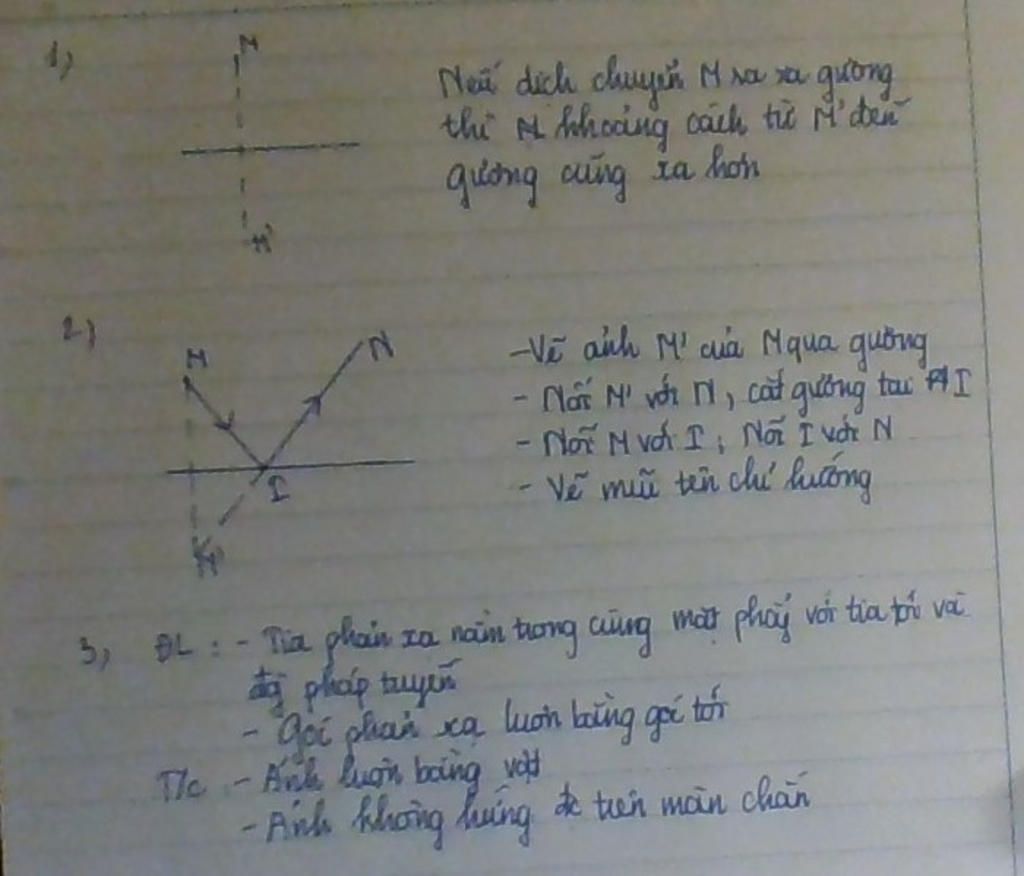 1)
M
Nếu dịch chuyển M ra xa gương
thì M khoảng cách từ M' đến
gương cũng xa hơn
M'
2)
M
N
- Vẽ ảnh M' của M qua gương
- Nối M' với N, cắt gương tại I
- Nối M với I; Nối I với N
I
- Vẽ mũi tên chỉ hướng
M'
3) ĐL: - Tia phản xạ nằm trong cùng mặt phẳg với tia tới và
đg pháp tuyến
- Góc phản xạ luôn bằng góc tới
T/c - Ảnh luôn bằng vật
- Ảnh không hứng đc trên màn chắn